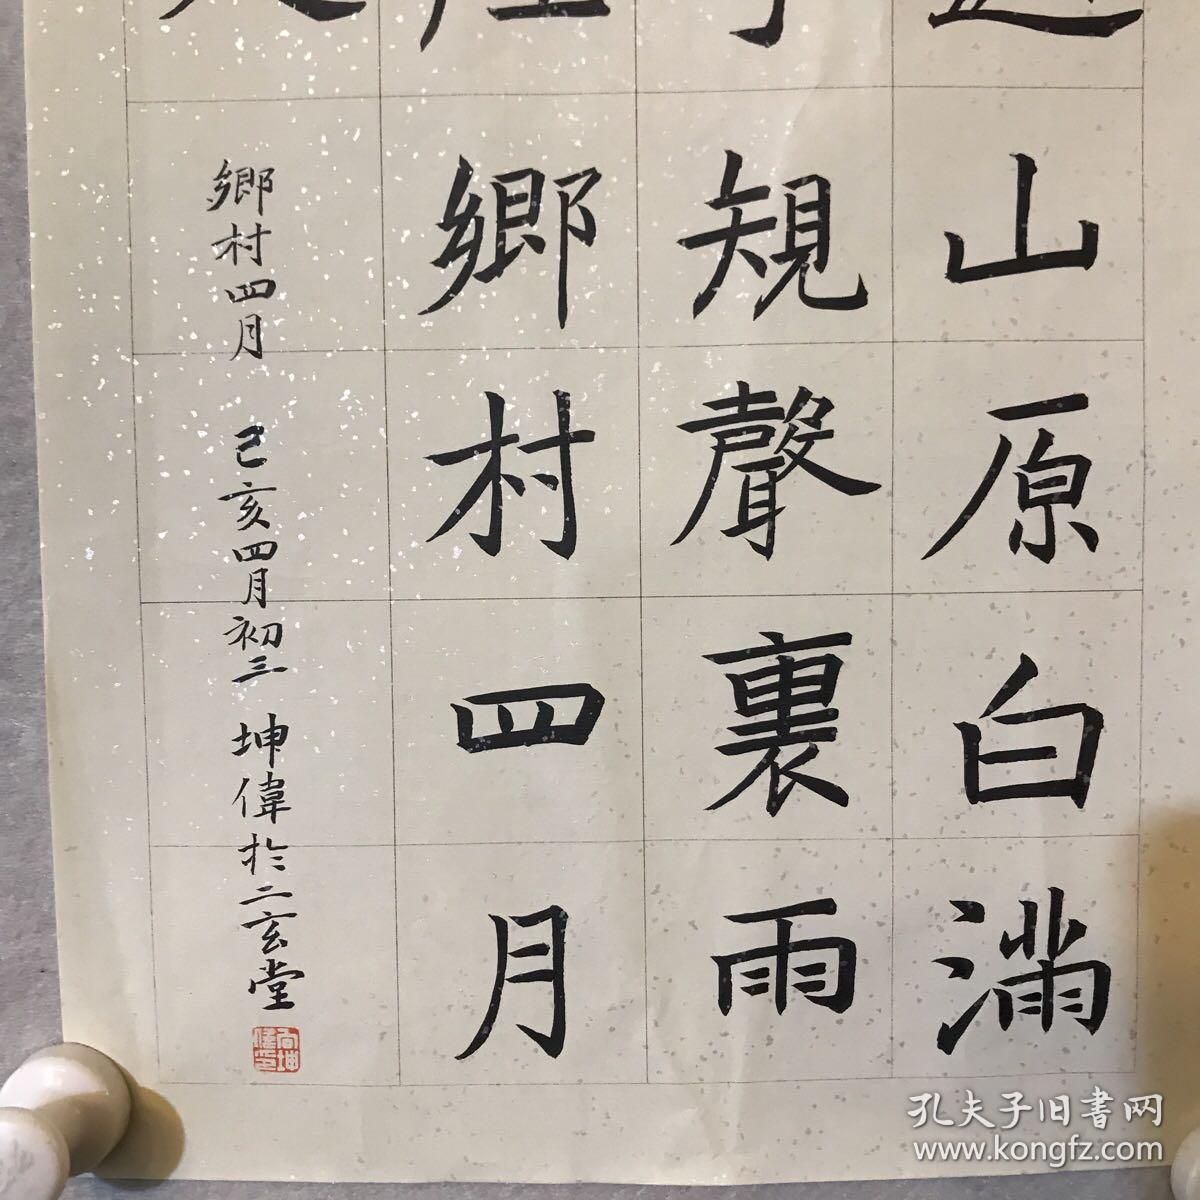 山原白滿
規聲裏雨
鄉村四月
鄉村四月 己亥四月初三 坤偉於二玄堂
孔夫子旧書网
www.kongfz.com